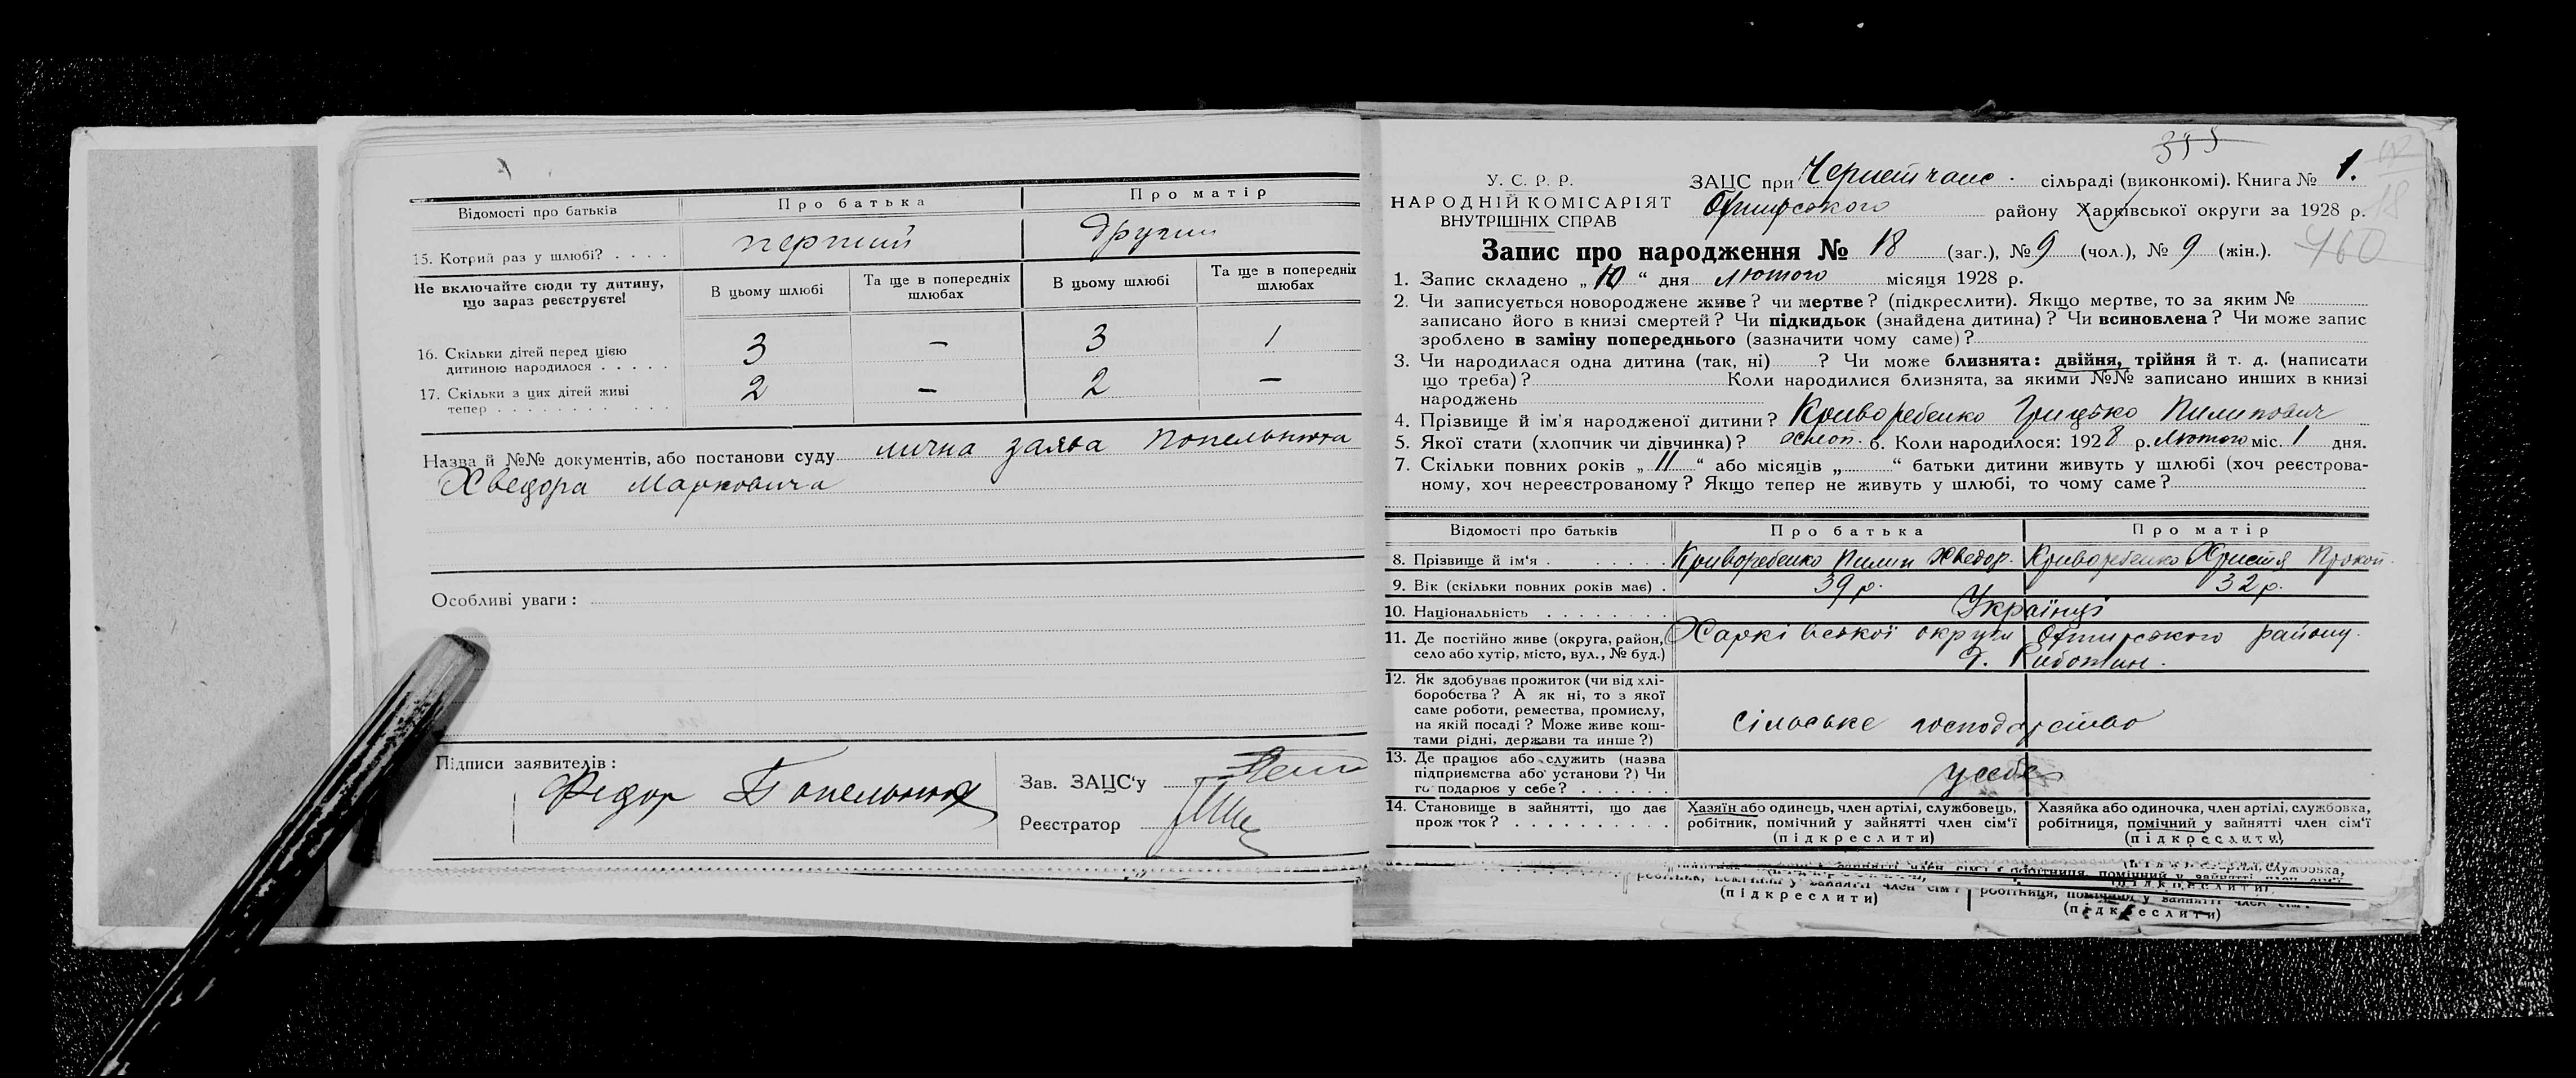 Відомості про батьків
Про батька
Про матір
15. Котрий раз у шлюбі? . . . .
перший
другий
Не включайте сюди ту дитину, що зараз реєструєте!
В цьому шлюбі
Та ще в попередніх шлюбах
В цьому шлюбі
Та ще в попередніх шлюбах
16. Скільки дітей перед цією
дитиною народилося . . . . .
3 — 3 1
17. Скільки з цих дітей живі
тепер . . . . . . . . . . .
2 — 2 —
Назва й №№ документів, або постанови суду лична заява Попельнюха
Хведора Марковича
Особливі уваги:
Підписи заявителів:
Федор Попельнюх
Зав. ЗАЦС'у
Реєстратор
У. С. Р. Р.
НАРОДНІЙ КОМІСАРІЯТ
ВНУТРІШНІХ СПРАВ
355
18
460
ЗАЦС при сільраді (виконкомі). Книга № 1.
району Харківської округи за 1928 р.
Запис про народження № 18 (заг.), № 9 (чол.), № 9 (жін.).
1. Запис складено „10“ дня лютого місяця 1928 р.
2. Чи записується новороджене живе? чи мертве? (підкреслити). Якщо мертве, то за яким №
записано його в книзі смертей? Чи підкидьок (знайдена дитина)? Чи всиновлена? Чи може запис
зроблено в заміну попереднього (зазначити чому саме)?
3. Чи народилася одна дитина (так, ні) ? Чи може близнята: двійня, трійня й т. д. (написати
що треба)? Коли народилися близнята, за якими №№ записано инших в книзі
народжень
4. Прізвище й ім'я народженої дитини? Криворебенко Грицько Пилипович
5. Якої стати (хлопчик чи дівчинка)? хлоп. 6. Коли народилося: 1928 р. Лютого міс. 1 дня.
7. Скільки повних років „11“ або місяців „ “ батьки дитини живуть у шлюбі (хоч реєстрова-
ному, хоч нереєстрованому? Якщо тепер не живуть у шлюбі, то чому саме?
Відомості про батьків
Про батька
Про матір
8. Прізвище й ім'я . . . . . . . Криворебенко Пилип Хведор. Криворебенко Христя Прокоп.
9. Вік (скільки повних років має) . 39 р. 32 р.
10. Національність . . . . . . . . Українці
11. Де постійно живе (округа, район,
село або хутір, місто, вул., № буд.)
Харківської округи Охтирського району.
12. Як здобуває прожиток (чи від хлі-
боробства? А як ні, то з якої
саме роботи, ремества, промислу,
на якій посаді? Може живе кош-
тами рідні, держави та инше?)
сільське господарство
13. Де працює або служить (назва
підприємства або установи?) Чи
господарює у себе? . . . . . .
у себе
14. Становище в зайнятті, що дає
прожиток? . . . . . . . . . .
Хазяїн або одинець, член артілі, службовець,
робітник, помічний у зайнятті член сім'ї
(підкреслити)
Хазяйка або одиночка, член артілі, службовка,
робітниця, помічний у зайнятті член сім'ї
(підкреслити)
(підкреслити)
(підкреслити)